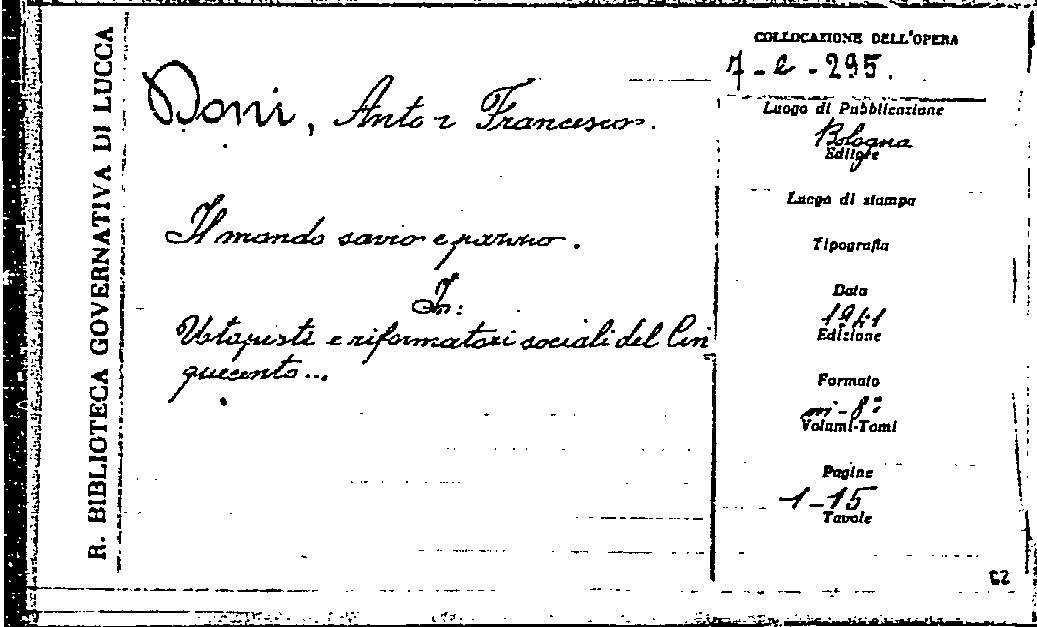 R. BIBLIOTECA GOVERNATIVA DI LUCCA
Doni, Anton Francesco.
Il mondo savio e pazzo.
In:
Utopisti e riformatori sociali del Cin
quecento...
COLLOCAZIONE DELL'OPERA
7 - e - 295.
Luogo di Pubblicazione
Bologna
Editore
Luogo di stampa
Tipografia
Data
1941
Edizione
Formato
in-8º
Volumi-Tomi
Pagine
1-15
Tavole